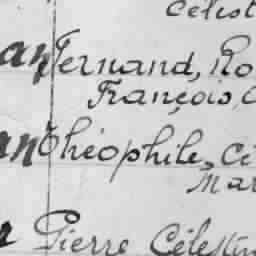 Célest
an Fernand, Ro
François, C
an Théophile, Cé
Mar
Pierre Célestin